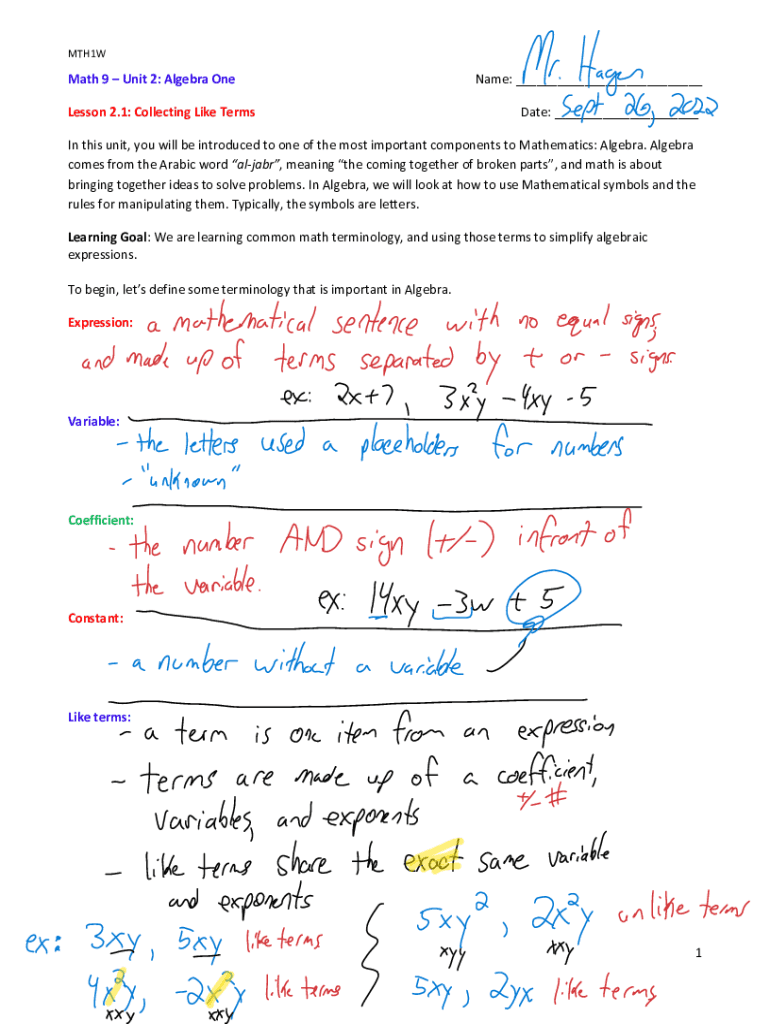 MTH1W
Math 9 – Unit 2: Algebra One
Name: Mr. Hagen
Lesson 2.1: Collecting Like Terms
Date: Sept 26, 2022
In this unit, you will be introduced to one of the most important components to Mathematics: Algebra. Algebra
comes from the Arabic word “al-jabr”, meaning “the coming together of broken parts”, and math is about
bringing together ideas to solve problems. In Algebra, we will look at how to use Mathematical symbols and the
rules for manipulating them. Typically, the symbols are letters.
Learning Goal: We are learning common math terminology, and using those terms to simplify algebraic
expressions.
To begin, let’s define some terminology that is important in Algebra.
Expression: a mathematical sentence with no equal signs,
and made up of terms separated by + or - signs.
ex: 2x+7, 3x²y - 4xy - 5
Variable:
- the letters used a placeholders for numbers
- "unknown"
Coefficient:
- the number AND sign (+/-) infront of
the variable.
ex: 14xy - 3w + 5
Constant:
- a number without a variable
Like terms:
- a term is one item from an expression
- terms are made up of a coefficient,
+/- #
variables, and exponents
- like terms share the exact same variable
and exponents
ex: 3xy, 5xy like terms
5xy², 2x²y unlike terms
xyy xxy
4x²y, -2x²y like terms
xxy xxy
5xy, 2yx like terms
1